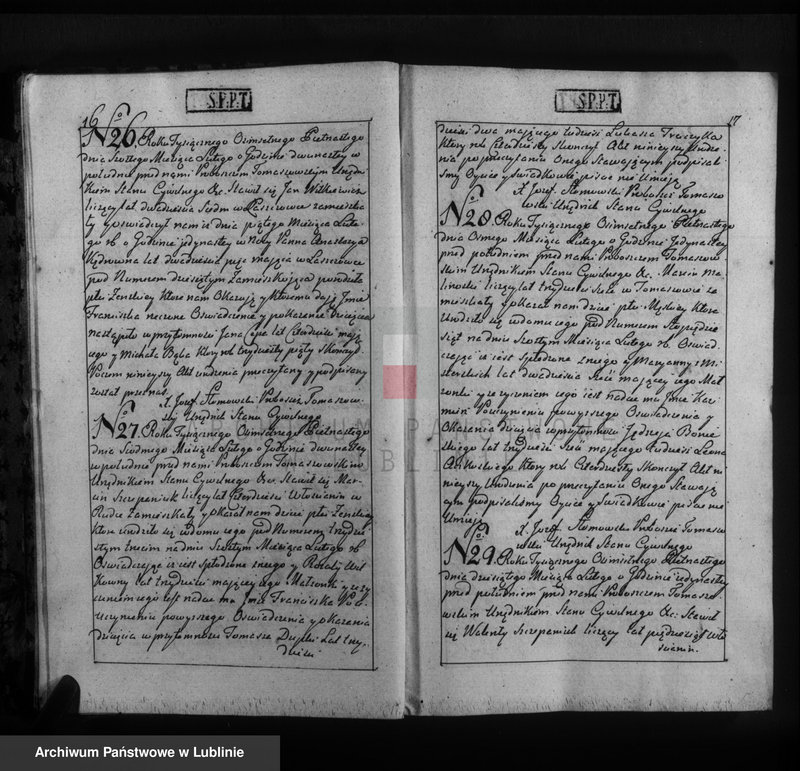 S.P.P.T.
16
No 26. Roku Tysiącznego Osimsetnego Pietnastego
dnia Szostego Miesiąca Lutego o Godzinie dwunastey w
południe przed nami Proboszczem Tomaszowskim Urzęd-
nikiem Stanu Cywilnego &c. Stawił się Jan Witkiewicz
liczący lat dwadzieścia Siedm w Łaszczowce zamieszka-
ły y oswiadczył nam iż dnia piątego Miesiąca Lute-
go rb o Godzinie jedynastey w Nocy Panna Anastazya
lat dwadzieścia pięć mająca w Łaszczowce
pod Numerem dziesiątym Zamieszkująca porodziła
płci Zenskiey które nam Okazuje y któremu daje Jmie
Franciszka Oswiadczenie y pokazanie dziecięcia
nastąpiło w przytomności Jana lat Czterdzieści mają-
cego y Michała Bąba który rok trzydziesty piąty skonczył
Poczem ninieyszy Akt urodzenia przeczytany y podpisany
został przez nas.
X. Jozef Słomowski Proboszcz Tomaszow-
ski Urzędnik Stanu Cywilnego
No 27. Roku Tysiącznego Osimsetnego Pietnastego
dnia Siodmego Miesiąca Lutego o Godzinie dwunastey
w południe przed nami Proboszczem Tomaszowskim
Urzędnikiem Stanu Cywilnego &c. Stawił się Mar-
cin Szczepaniuk liczący lat Czterdzieści Włoscianin w
Rudce Zamieszkały y okazał nam dziecie płci Zenskiey
które urodziło się w domu jego pod Numerem trzydzie-
stym trzecim na dniu Szostym Miesiąca Lutego rb
Oswiadczając iż jest spłodzone z niego y Rozalii
lat trzydzieści mającey jego Małzonki y ze zy-
czeniem jego jest nadać mu Jmie Franciszka Po
uczynieniu powyzszego Oswiadczenia y okazania
dziecięcia w przytomności Tomasza Dupli Lat trzy-
dzieści
S.P.P.T.
17
dzieści dwa mającego tudzież Łukasza
który rok Czterdziesty Skonczył Akt ninieyszy Urodze-
nia po przeczytaniu Onego Stawającym podpisali-
smy Oyciec y Swiadkowie pisać nie Umieją
X. Jozef Słomowski Proboszcz Tomaszo
wski Urzędnik Stanu Cywilnego
No 28. Roku Tysiącznego Osimsetnego Pietnastego
dnia Osmego Miesiąca Lutego o Godzinie Jedynastey
przed południem przed nami Proboszczem Tomaszow-
skim Urzędnikiem Stanu Cywilnego &c. Marcin Ma-
linoski liczący lat trzydzieści Szesć w Tomaszowie za
mieszkały y okazał nam dziecie płci Męskiey które
Urodziło się w domu jego pod Numerem Sto pięćdzie
siąt na dniu Szostym Miesiąca Lutego rb. Oswiad-
czając iż jest spłodzone z niego y Maryanny z
lat dwadzieścia Szesć mającey jego Mał
zonki y ze zyczeniem jego jest nadać mu Jmie Kazi
mierz Po uczynieniu powyzszego Oswiadczenia y
Okazania dziecięcia w przytomności Jędrzeja
skiego lat trzydzieści Szesć mającego tudzież Leona
który rok Czterdziesty Skonczył Akt ni
nieyszy Urodzenia po przeczytaniu Onego Stawają
cym podpisaliśmy Oyciec y Swiadkowie pisać nie
Umieją
X. Jozef Słomowski Proboszcz Tomaszo
wski Urzędnik Stanu Cywilnego
No 29. Roku Tysiącznego Osimsetnego Pietnastego
dnia dziesiątego Miesiąca Lutego o Godzinie jedynastey
przed południem przed nami Proboszczem Tomaszo
wskim Urzędnikiem Stanu Cywilnego &c: Stawił
się Walenty Szczepaniuk liczący lat pięćdziesiąt Wło
scianin.
Archiwum Państwowe w Lublinie